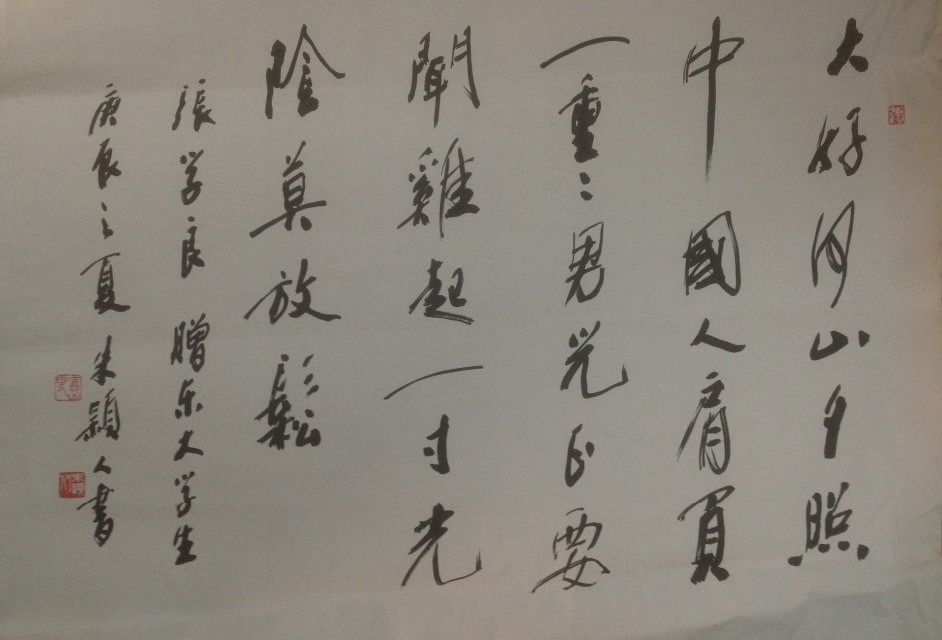 大好河山夕照
中國人肩負
一重〻男児正要
聞雞起一寸光
陰莫放鬆
張学良 贈东大学生
庚辰之夏 朱穎人書